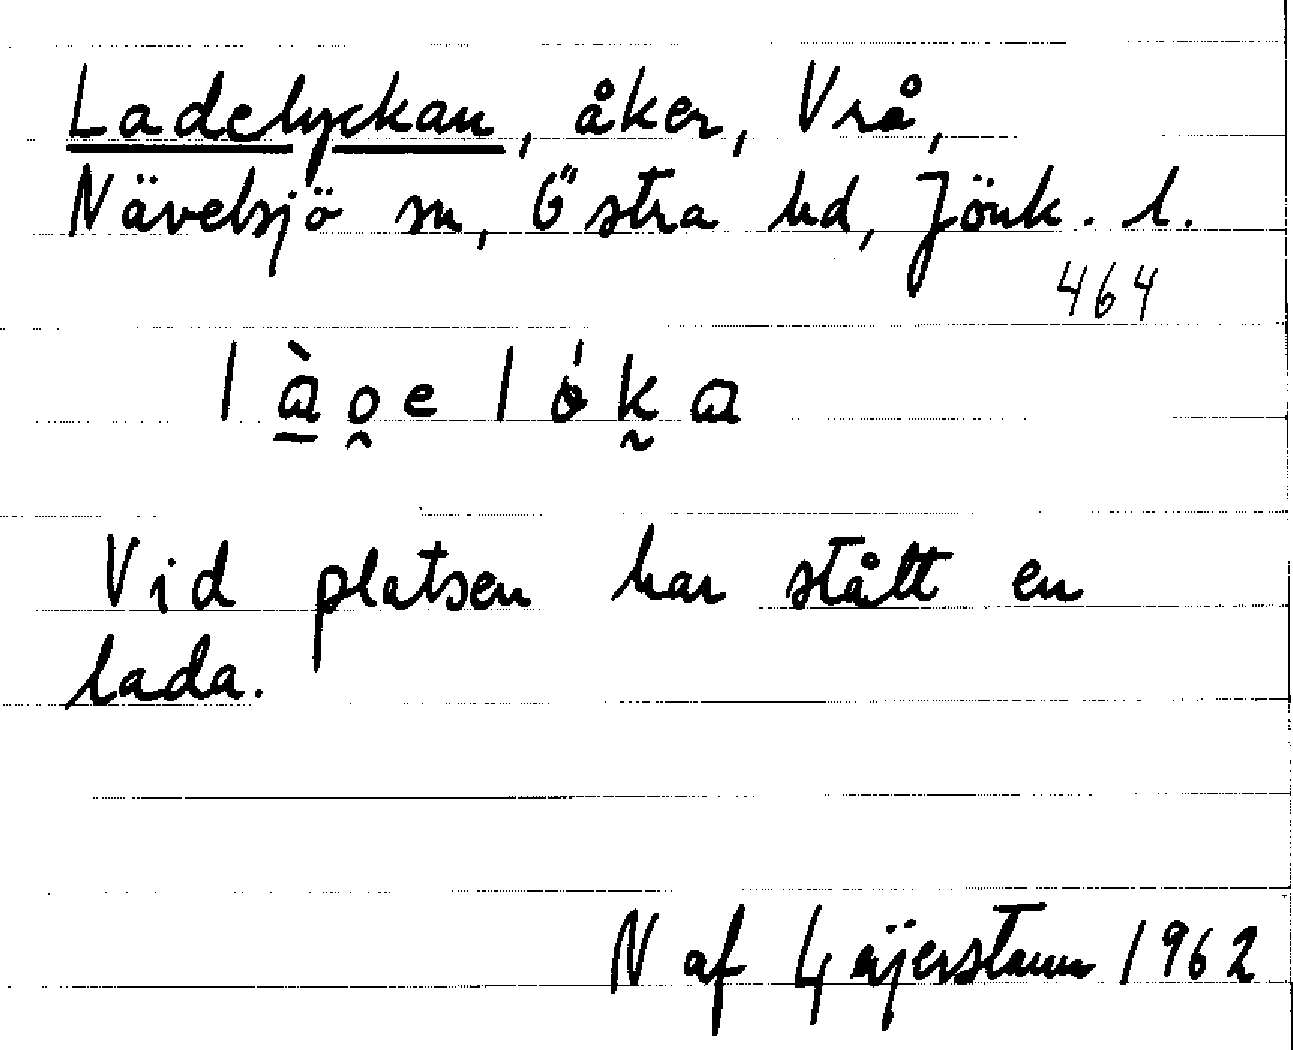 Ladelyckan, åker, Vrå,
Nävelsjö sn, Östra hd, Jönk. l.
464
Vid platsen har stått en
lada.
N af Geijerstam 1962